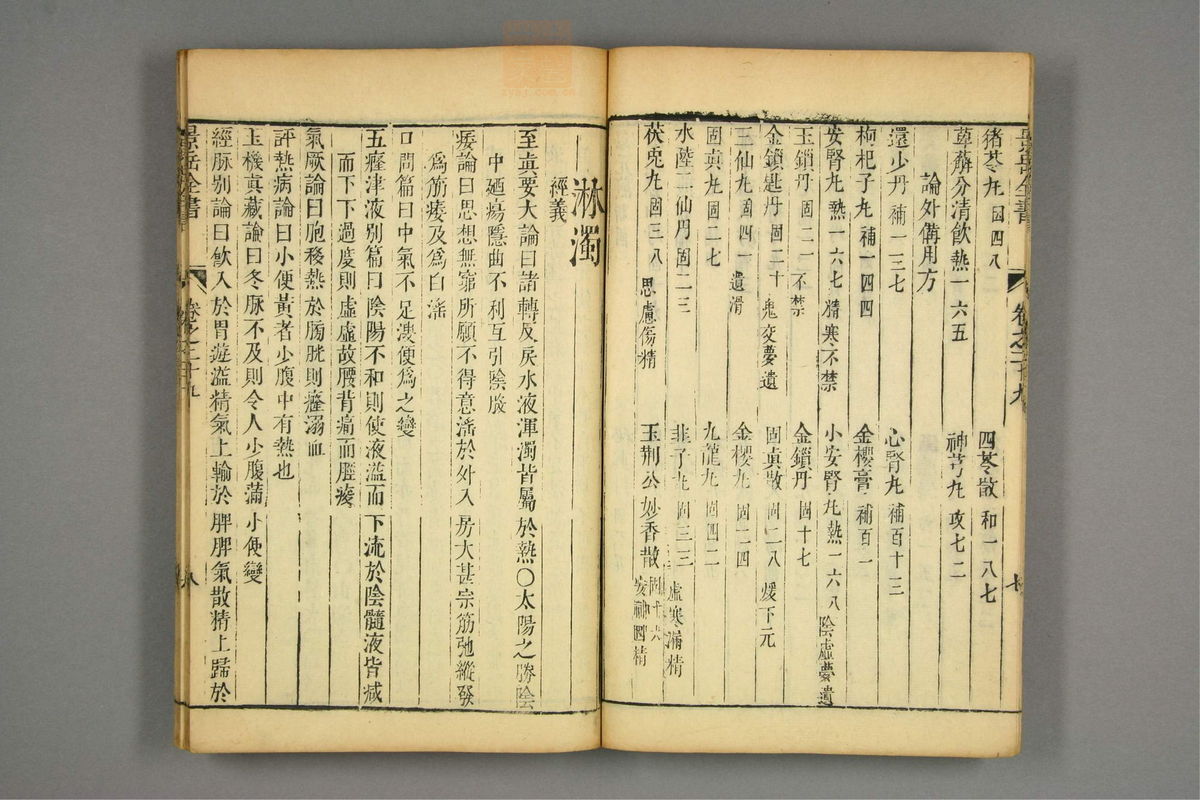 景岳全書
卷之二十九
猪苓丸 固四八
四苓散 和一八七
萆薢分清飲 熱一六五
神芎丸 攻七二
論外備用方
還少丹 補一三七
心腎丸 補百十三
枸杞子丸 補一四四
金櫻膏 補百一
安腎丸 熱一六七 精寒不禁
小安腎丸 熱一六八 陰虛夢遺
玉鎖丹 固二一 不禁
金鎖丹 固十七
金鎖匙丹 固二十 鬼交夢遺
固眞散 固二八 煖下元
三仙丸 固四一 遺滑
金櫻丸 固二四
固眞丸 固二七
九龍丸 固四二
水陸二仙丹 固二三
韭子丸 固三三 虛寒漏精
茯兎丸 固三八 思慮傷精
王荆公妙香散 固十六 安神固精
淋濁
經義
至眞要大論曰諸轉反戾水液渾濁皆屬於熱○太陽之勝陰
中廼瘍隱曲不利互引陰股
痿論曰思想無窮所願不得意滛於外入房大甚宗筋弛縱發
爲筋痿及爲白滛
口問篇曰中氣不足溲便爲之變
五癃津液别篇曰陰陽不和則使液溢而下流於陰髓液皆减
而下下過度則虛虛故腰背痛而脛痠
氣厥論曰胞移熱於膀胱則癃溺血
評熱病論曰小便黃者少腹中有熱也
玉機眞藏論曰冬脉不及則令人少腹滿小便變
經脉别論曰飮入於胃遊溢精氣上輸於脾脾氣散精上歸於
景岳全書
卷之二十九